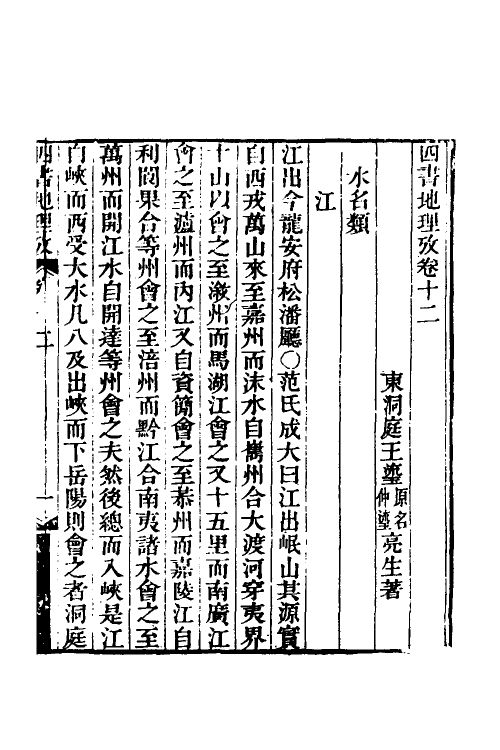 四書地理攷卷十二
東洞庭王瑬原名仲瑬亮生著
水名類
江
江出今龍安府松潘廳○范氏成大曰江出岷山其源實
自西戎萬山來至嘉州而沬水自巂州合大渡河穿夷界
十山以會之至漵州而馬湖江會之又十五里而南廣江
會之至瀘州而內江又自資簡會之至恭州而嘉陵江自
利閬果合等州會之至涪州而黔江合南夷諸水會之至
萬州而開江水自開達等州會之夫然後總而入峽是江
自峽而西受大水凡八及出峽而下岳陽則會之者洞庭
四書地理攷